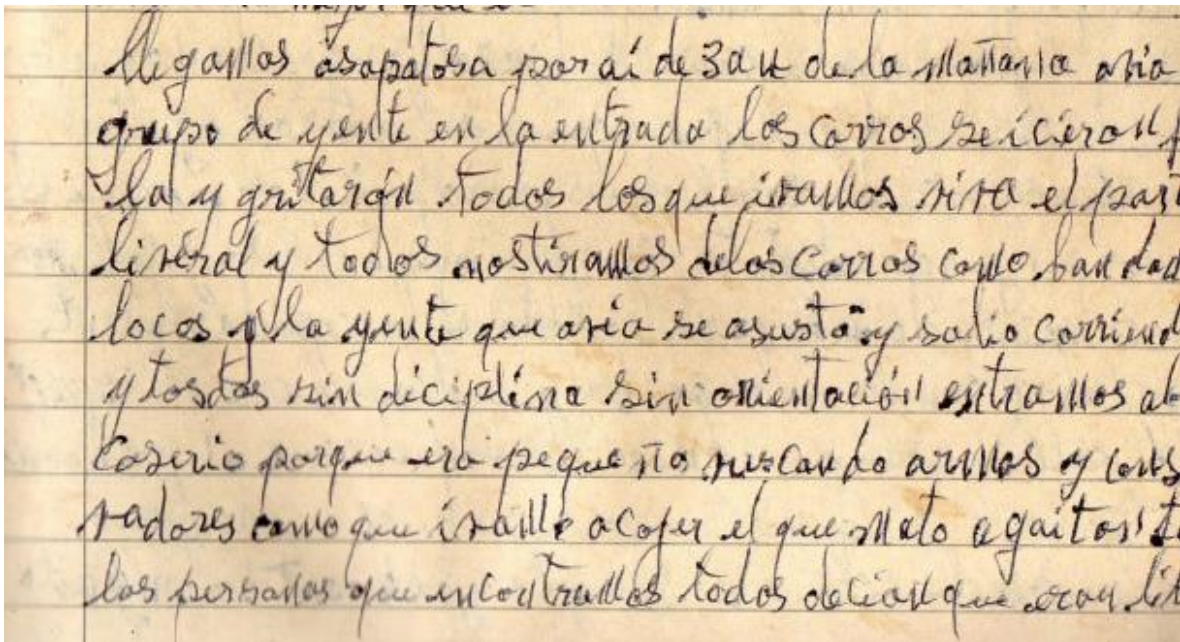 llegamos asapatosa por ai de 3 a 4 de la mañana avia
grupo de yente en la entrada los carros se icieron f
la y gritarón todos los que ivamos viva el part
liveral y todos nostiramos delos Carros como bandad
locos y la yente que avia se asusto y salio corriend
y tosdos sin diciplina sin orientación entramos al
caserio porque era pequeño nuscando armas y cons
vadores como que ivamo a cojer el que mato a gaitan t
las personas que encontramos todos decian que eran lib